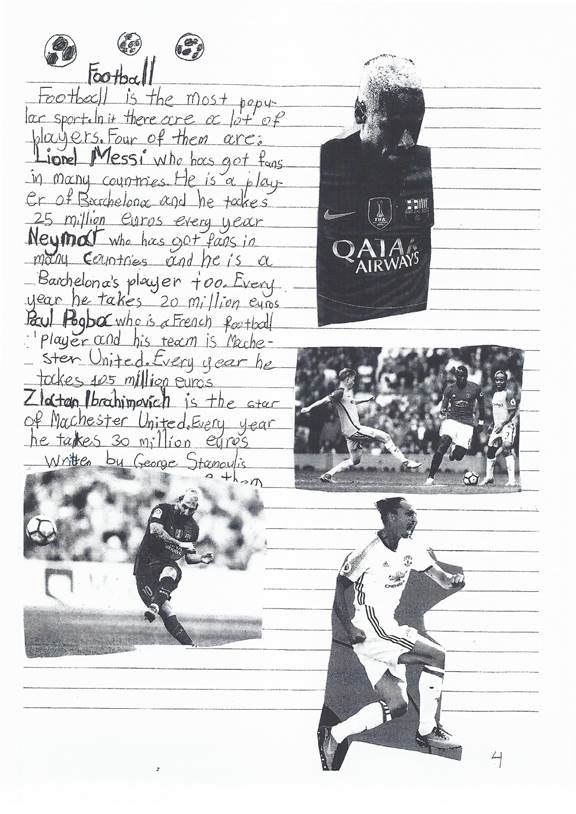 Football
Football is the most popu-
lar sport. In it there are a lot of
players. Four of them are:
Lionel Messi who has got fans
in many countries. He is a play-
er of Barchelona and he takes
25 million euros every year
Neymar who has got fans in
many countries and he is a
Barchelona's player too. Every
year he takes 20 million euros
Paul Pogba who is a French football
player and his team is Mache-
ster United. Every year he
takes 105 million euros
Zlatan Ibrahimovich is the star
of Machester United. Every year
he takes 30 million euros
Written by George Stamoulis
QATAR
AIRWAYS
4